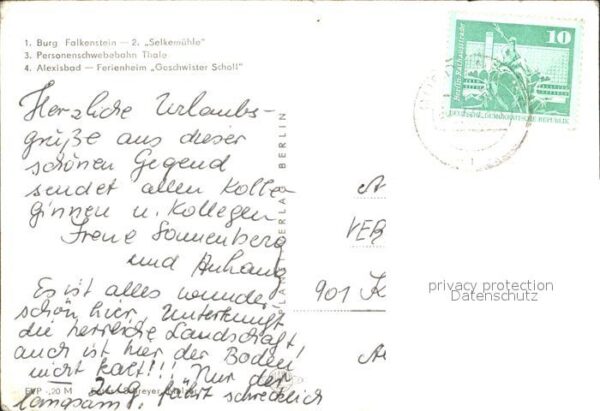 1. Burg Falkenstein — 2. „Selkemühle"
3. Personenschwebebahn Thale
4. Alexisbad — Ferienheim „Geschwister Scholl"
Herzliche Urlaubs-
grüße aus dieser
schönen Gegend
sendet allen Kolle-
ginnen u. Kollegen
Irene Sonnenberg
und Anhang
Es ist alles wunder
schön hier, Unterkunft,
die herrliche Landschaft,
auch ist hier der Boden
nicht kalt!!! Nur der
Zug fährt schrecklich
langsam!
EVP -,20 M
BERLIN
10
Berlin-Rathausstraße
DEUTSCHE DEMOKRATISCHE REPUBLIK
A
VEB
901 K
privacy protection
Datenschutz